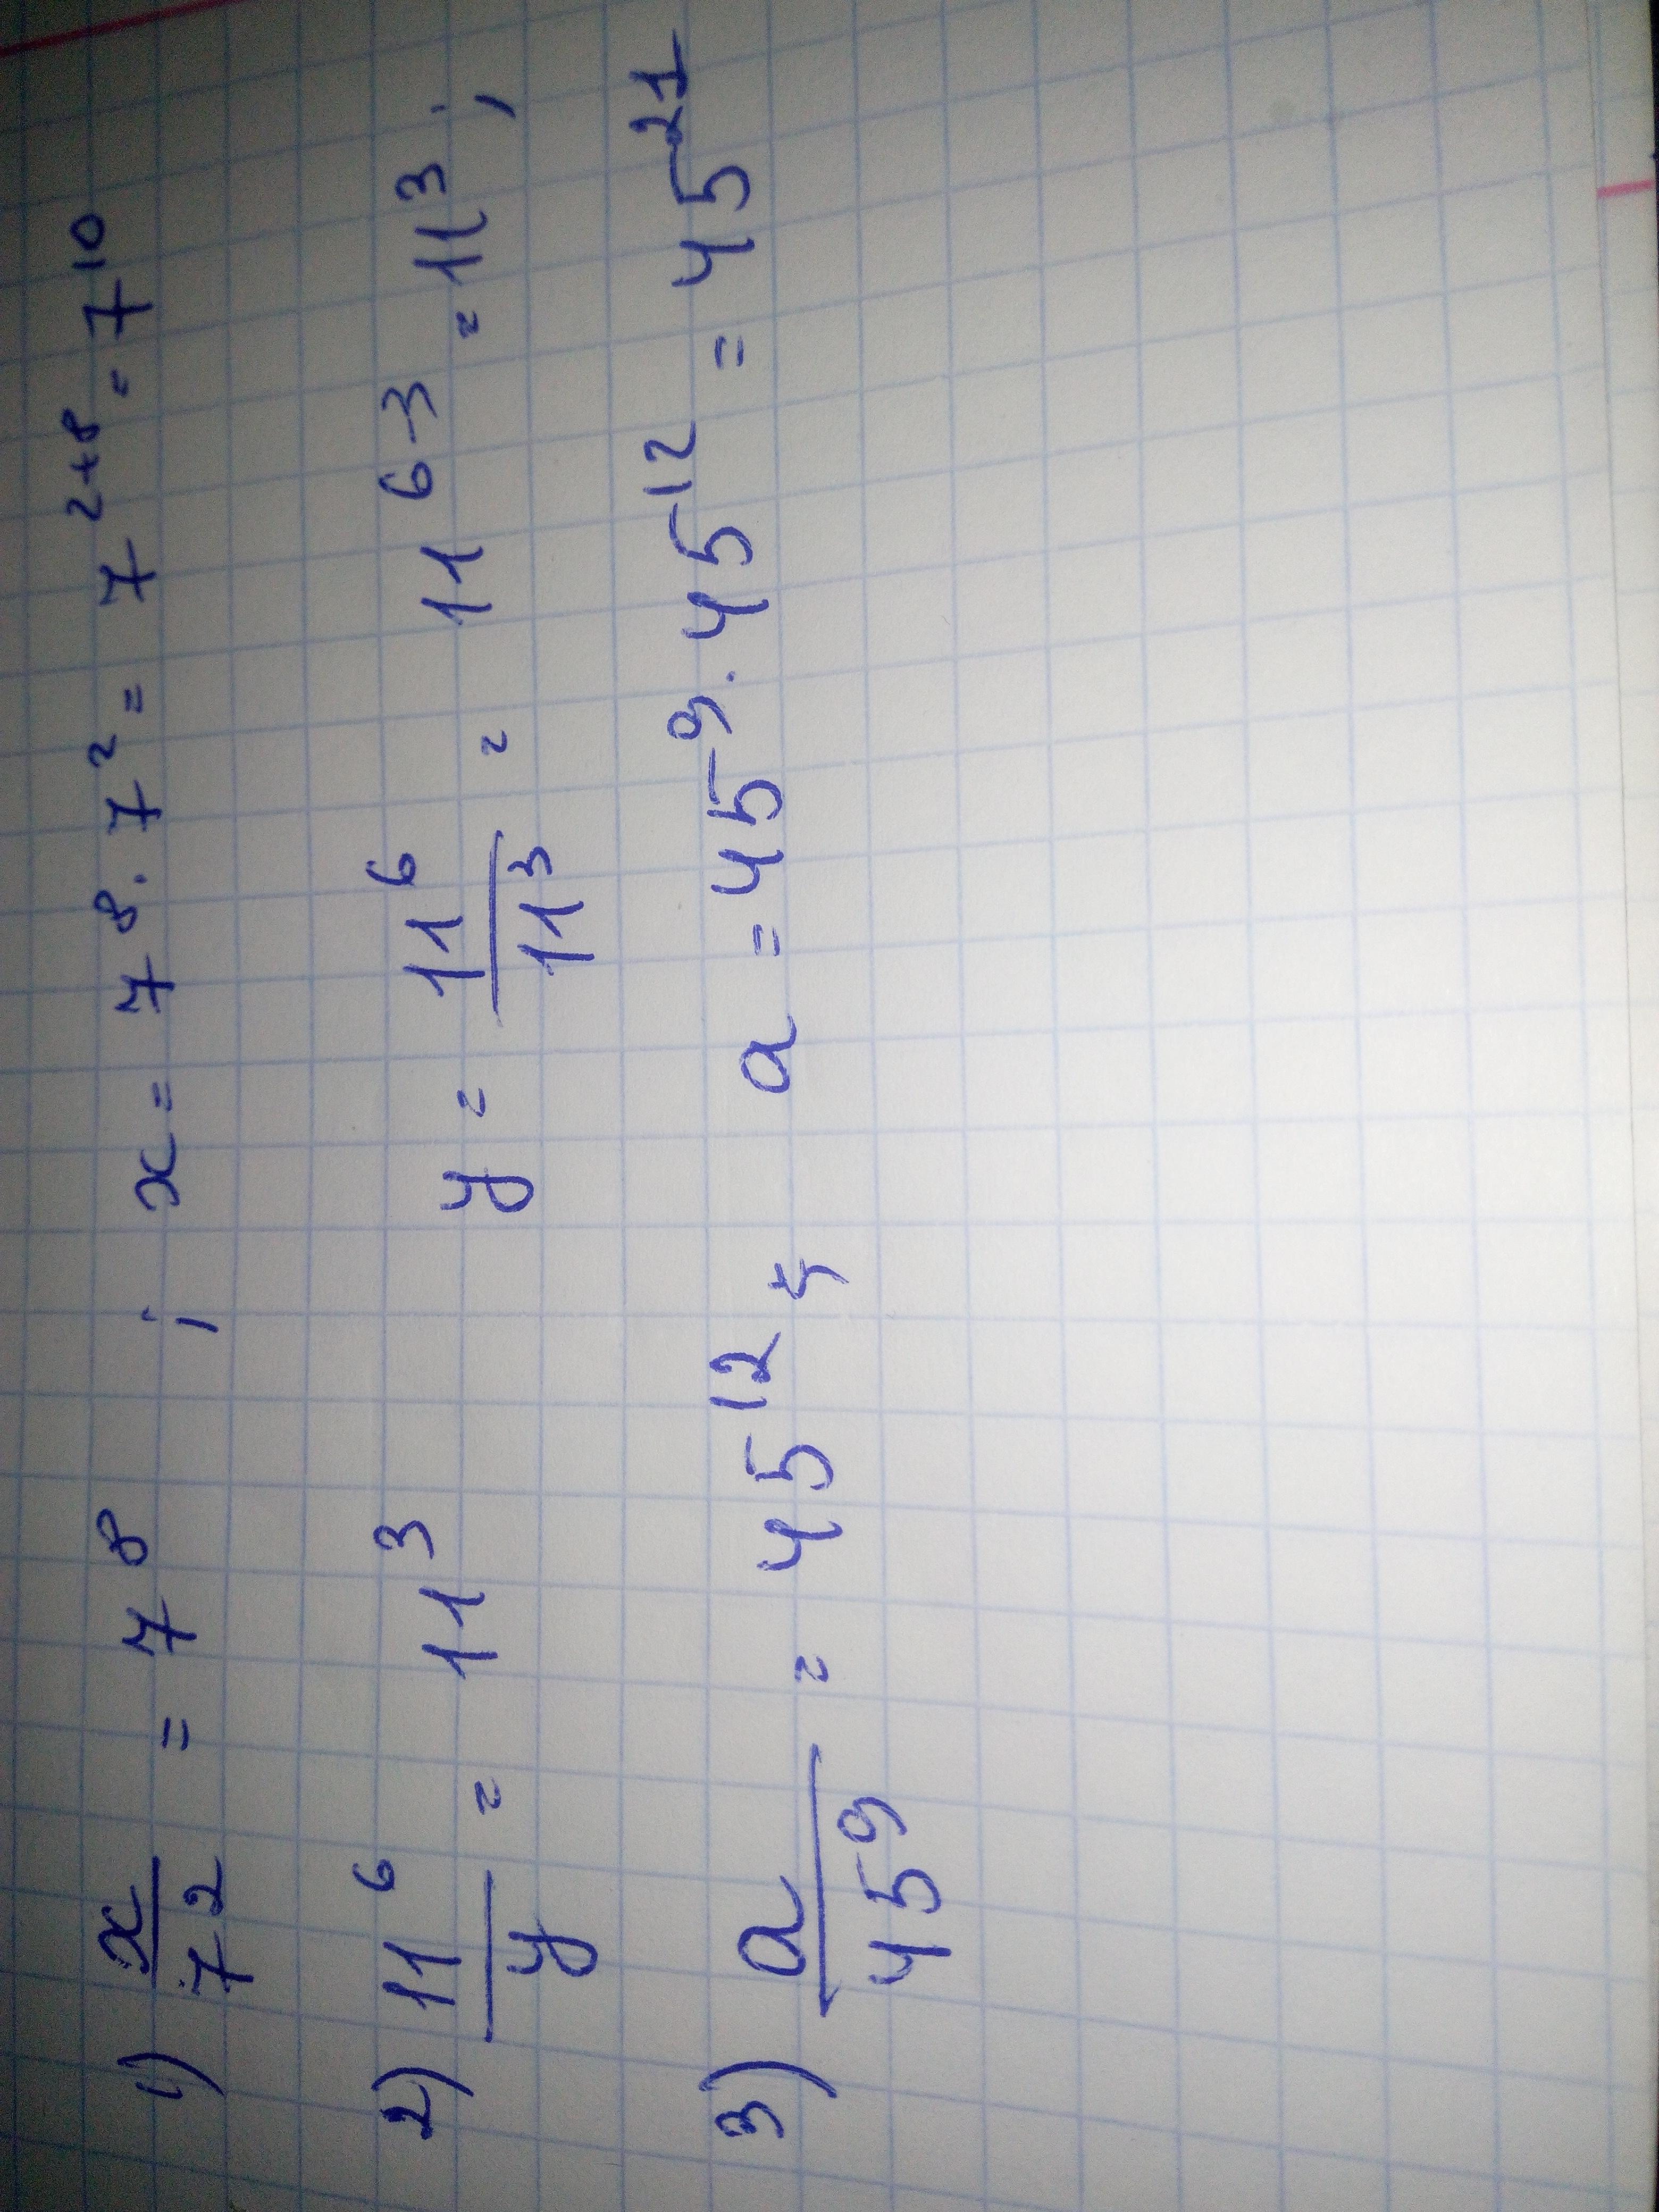 1) x/7² = 7⁸ ; x = 7⁸ · 7² = 7²⁺⁸ = 7¹⁰
2) 11⁶/y = 11³ y = 11⁶/11³ = 11⁶⁻³ = 11³ ;
3) a/45⁹ = 45¹² ; a = 45⁹ · 45¹² = 45²¹